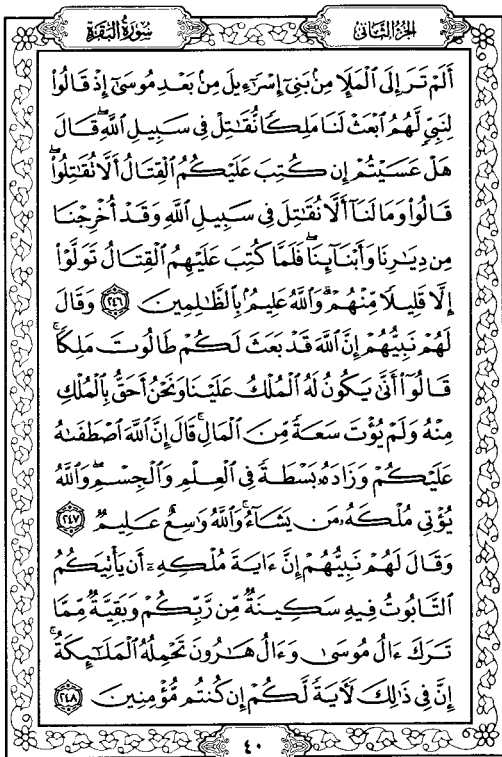 سُورَةُ البَقَرَةِ
الجُزءُ الثَّانِي
أَلَمْ تَرَ إِلَى ٱلْمَلَإِ مِنۢ بَنِىٓ إِسْرَٰٓءِيلَ مِنۢ بَعْدِ مُوسَىٰٓ إِذْ قَالُوا۟
لِنَبِىٍّ لَّهُمُ ٱبْعَثْ لَنَا مَلِكًا نُّقَٰتِلْ فِى سَبِيلِ ٱللَّهِ ۖ قَالَ
هَلْ عَسَيْتُمْ إِن كُتِبَ عَلَيْكُمُ ٱلْقِتَالُ أَلَّا تُقَٰتِلُوا۟ ۖ
قَالُوا۟ وَمَا لَنَآ أَلَّا نُقَٰتِلَ فِى سَبِيلِ ٱللَّهِ وَقَدْ أُخْرِجْنَا
مِن دِيَٰرِنَا وَأَبْنَآئِنَا ۖ فَلَمَّا كُتِبَ عَلَيْهِمُ ٱلْقِتَالُ تَوَلَّوْا۟
إِلَّا قَلِيلًا مِّنْهُمْ ۗ وَٱللَّهُ عَلِيمٌۢ بِٱلظَّٰلِمِينَ ﴿٢٤٦﴾ وَقَالَ
لَهُمْ نَبِيُّهُمْ إِنَّ ٱللَّهَ قَدْ بَعَثَ لَكُمْ طَالُوتَ مَلِكًا ۚ
قَالُوٓا۟ أَنَّىٰ يَكُونُ لَهُ ٱلْمُلْكُ عَلَيْنَا وَنَحْنُ أَحَقُّ بِٱلْمُلْكِ
مِنْهُ وَلَمْ يُؤْتَ سَعَةً مِّنَ ٱلْمَالِ ۚ قَالَ إِنَّ ٱللَّهَ ٱصْطَفَىٰهُ
عَلَيْكُمْ وَزَادَهُۥ بَسْطَةً فِى ٱلْعِلْمِ وَٱلْجِسْمِ ۖ وَٱللَّهُ
يُؤْتِى مُلْكَهُۥ مَن يَشَآءُ ۚ وَٱللَّهُ وَٰسِعٌ عَلِيمٌ ﴿٢٤٧﴾
وَقَالَ لَهُمْ نَبِيُّهُمْ إِنَّ ءَايَةَ مُلْكِهِۦٓ أَن يَأْتِيَكُمُ
ٱلتَّابُوتُ فِيهِ سَكِينَةٌ مِّن رَّبِّكُمْ وَبَقِيَّةٌ مِّمَّا
تَرَكَ ءَالُ مُوسَىٰ وَءَالُ هَٰرُونَ تَحْمِلُهُ ٱلْمَلَٰٓئِكَةُ ۚ
إِنَّ فِى ذَٰلِكَ لَءَايَةً لَّكُمْ إِن كُنتُم مُّؤْمِنِينَ ﴿٢٤٨﴾
٤٠